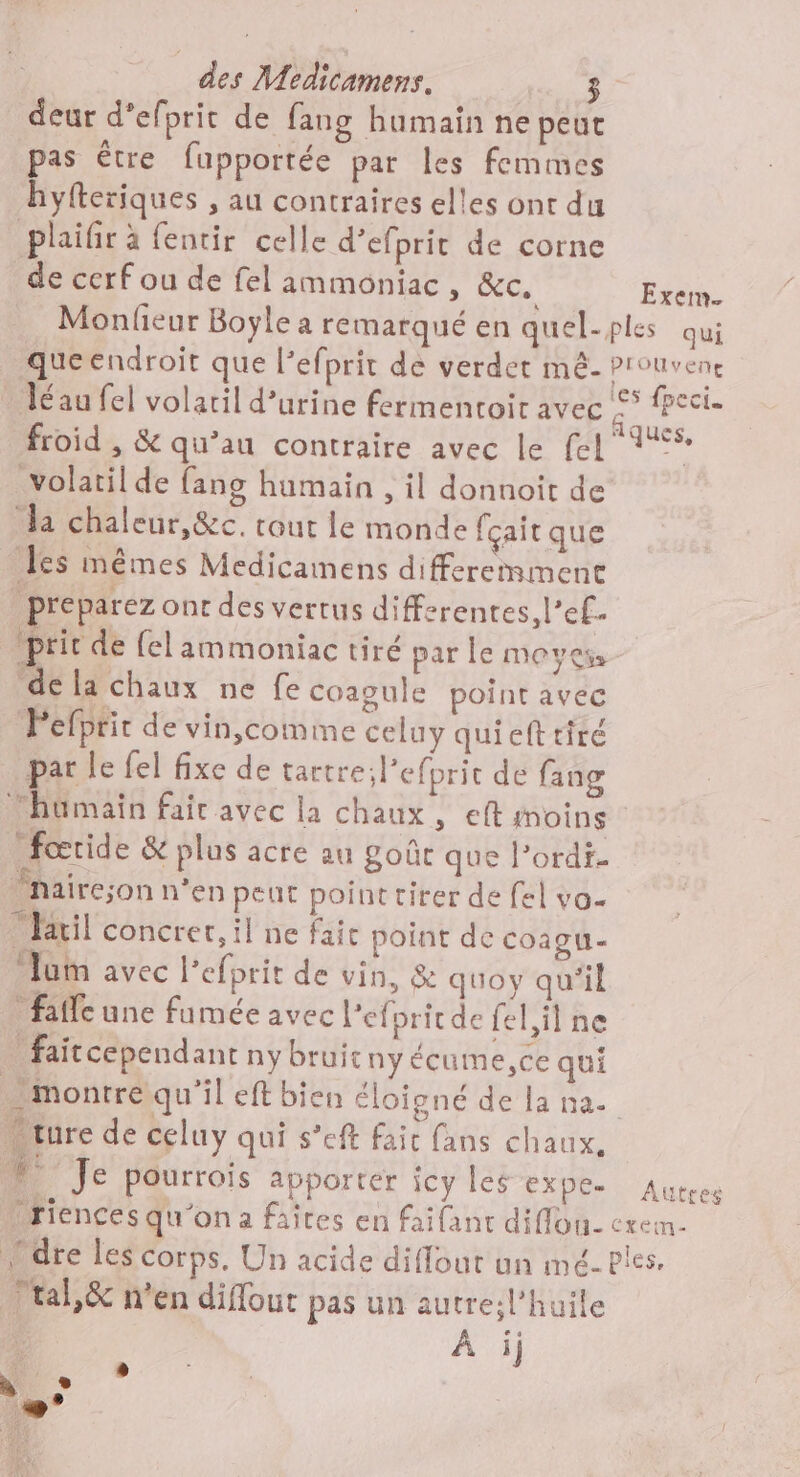 des Medicamens. 3
deur d'eſprit de ſang humain ne peut
pas être ſupportée par les femmes
hyſteriques , au contraires elles ont du
plaiſir à ſentir celle d'eſprit de corne
de cerf ou de ſel ammoniac , &c.
Monſieur Boyle a remarqué en quel-
que endroit que l'eſprit de verdet mê-
lé au ſel volatil d'urine fermentoit avec
froid , & qu'au contraire avec le ſel
volatil de ſang humain , il donnoit de
la chaleur,&c. tout le monde ſçait que
les mêmes Medicamens differemment
preparez ont des vertus differentes,l'eſ-
prit de ſel ammoniac tiré par le moyen
de la chaux ne ſe coagule point avec
l'eſprit de vin,comme celuy qui eſt tiré
par le ſel fixe de tartre;l'eſprit de ſang
humain fait avec la chaux , eſt moins
fœtide & plus acre au goût que l'ordi-
naire;on n'en peut point tirer de ſel vo-
latil concret, il ne fait point de coagu-
lum avec l'eſprit de vin, & quoy qu'il
faſſe une fumée avec l'eſprit de ſel,il ne
fait cependant ny bruit ny écume,ce qui
montre qu'il eſt bien éloigné de la na-
ture de celuy qui s'eſt fait ſans chaux.
Je pourrois apporter icy les expe-
riences qu'on a faites en faiſant diſſou-
dre les corps. Un acide diſſout un mé-
tal,& n'en diſſout pas un autre;l'huile
A ij
Exem-
ples qui
prouvent
les ſpeci-
fiques.
Autres
exem-
ples.